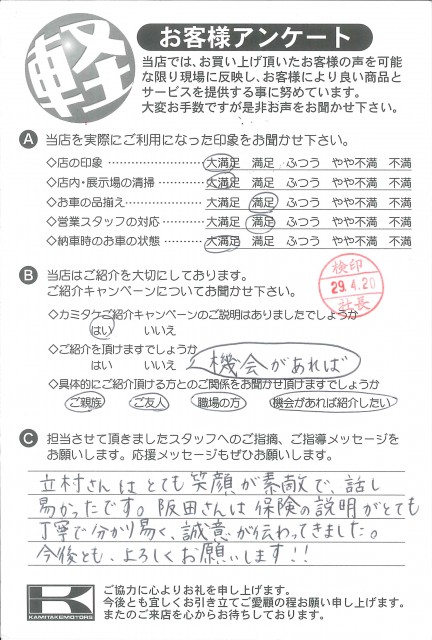 軽
お客様アンケート
当店では、お買い上げ頂いたお客様の声を可能
な限り現場に反映し、お客様により良い商品と
サービスを提供する事に努めています。
大変お手数ですが是非お声をお聞かせ下さい。
A 当店を実際にご利用になった印象をお聞かせ下さい。
◇店の印象 ………………… 大満足 満足 ふつう やや不満 不満
◇店内・展示場の清掃 ……… 大満足 満足 ふつう やや不満 不満
◇お車の品揃え …………… 大満足 満足 ふつう やや不満 不満
◇営業スタッフの対応 ……… 大満足 満足 ふつう やや不満 不満
◇納車時のお車の状態 ……… 大満足 満足 ふつう やや不満 不満
B 当店はご紹介を大切にしてあります。
ご紹介キャンペーンについてお聞かせ下さい。
検印
29.4.20
社長
◇カミタケご紹介キャンペーンのご説明はありましたでしょうか
はい いいえ
◇ご紹介を頂けますでしょうか
はい いいえ 機会があれば
◇具体的にご紹介頂ける方とのご関係をお聞かせ頂けますでしょうか
ご親族 ご友人 職場の方 機会があれば紹介したい
C 担当させて頂きましたスタッフへのご指摘、ご指導メッセージを
お願いします。応援メッセージもぜひお願いします。
立村さんはとても笑顔が素敵で、話し
易かったです。阪田さんは保険の説明がとても
丁寧で分かり易く、誠意が伝わってきました。
今後とも、よろしくお願いします!!
K
KAMITAKEMOTORS
ご協力に心よりお礼を申し上げます。
今後とも宜しくお引き立てご愛顧の程お願い申し上げます。
またのご来店を心からお待ちしております。